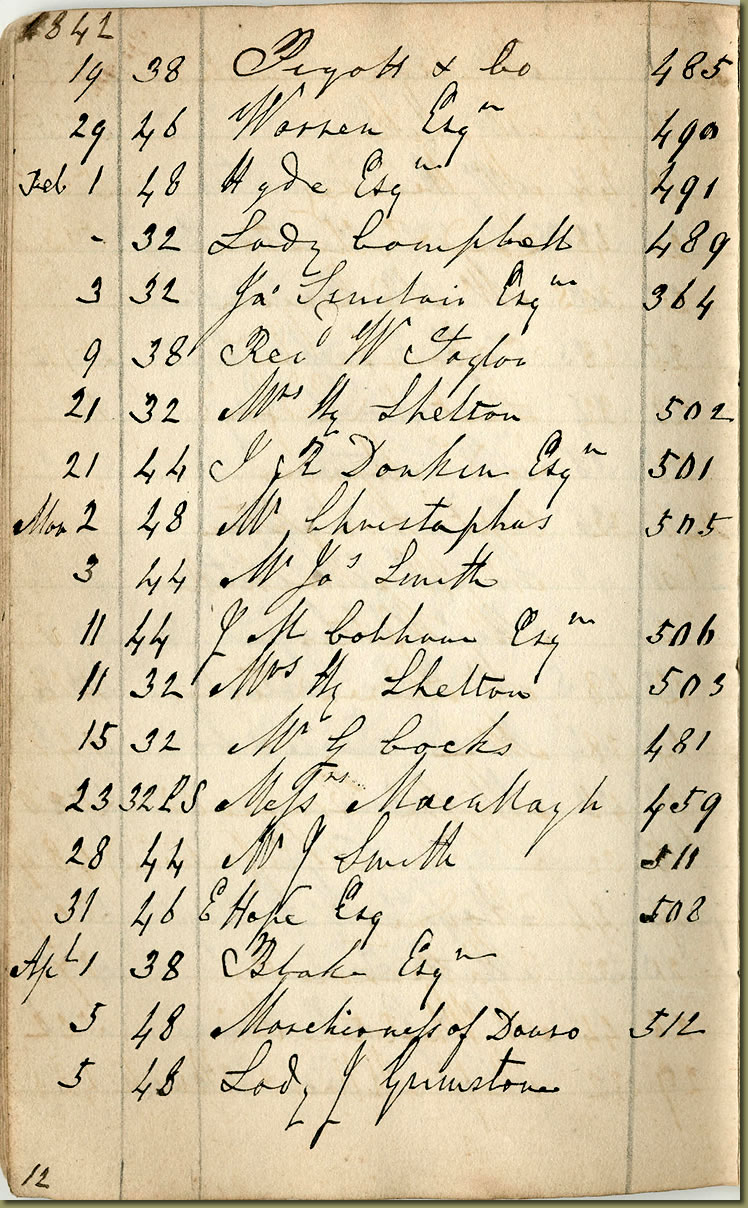 1842
19 38 Pigott & Co 485
29 46 Warren Esqr 490
Feb 1 48 Hyde Esqr 491
- 32 Lady Campbell 489
3 32 Jas Sinclair Esqr 364
9 38 Revd W Taylor
21 32 Mrs Hy Shelton 502
21 44 J R Donkin Esqr 501
Mar 2 48 Mr Christophus 505
3 44 Mr Jas Smith
11 44 J M Cobham Esqr 506
11 32 Mrs Hy Shelton 503
15 32 Mr G Cocks 481
23 32 PS Messrs Macullagh 459
28 44 Mr J Smith 511
31 46 E Hope Esq 508
Apl 1 38 Blake Esqr
5 48 Marchioness of Douro 512
5 48 Lady J Grimstone
12